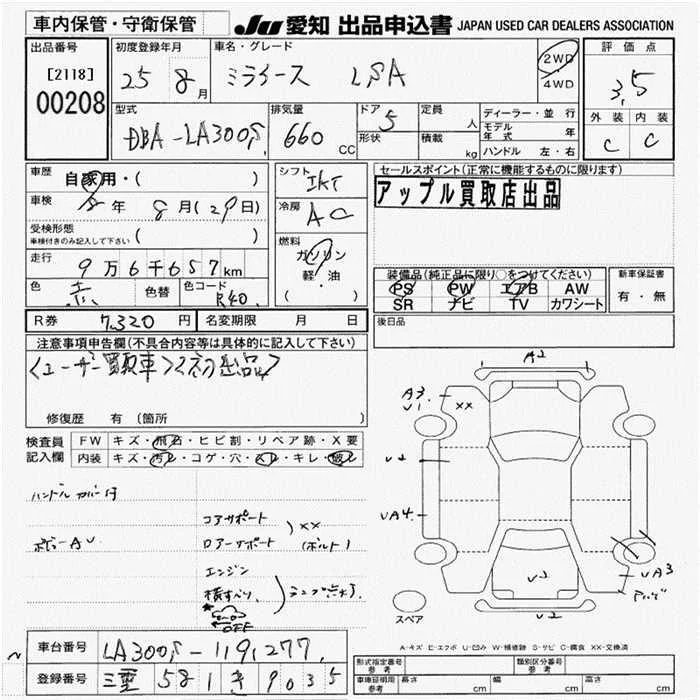 車内保管・守衛保管
JU 愛知 出品申込書 JAPAN USED CAR DEALERS ASSOCIATION
出品番号
[2118]
00208
初度登録年月
25 8月
車名・グレード
ミライース LSA
2WD
4WD
評価点
3.5
外装 内装
C C
型式
DBA-LA300S
排気量
660 CC
ドア 5
形状
定員 人
積載 kg
ディーラー・並行
モデル年式 年
ハンドル 左・右
車歴
自家用・( )
車検
年 8月(29日)
受検形態
車検付きのみ記入して下さい ( )
走行
9万6千657km
色 赤 色替
色コード R40
シフト IAT
冷房 AC
燃料
ガソリン
軽・油
( )
セールスポイント(正常に機能するものに限ります)
アップル買取店出品
装備品(純正品に限り○をつけてください)
PS PW エアB AW
SR ナビ TV カワシート
新車保証書
有・無
R券 7,320円 名変期限 月 日
後日品
注意事項申告欄(不具合内容等は具体的に記入して下さい)
<ユーザー買取車><初出品>
修復歴 有 (箇所 )
検査員記入欄
FW キズ・飛石・ヒビ割・リペア跡・X要
内装 キズ・汚レ・コゲ・穴・スレ・キレ・破レ
ハンドルカバー付
ボデーAU
コアサポート
ロアーサポート
XX
(ボルト)
エンジン
横すべり
OFF
ランプ点灯
A2
A3
U1
XX
U2
UA4
U2
U2
UA3
スペア
A-キズ E-エクボ U-凹み W-補修跡 S-サビ C-腐食 XX-交換済
車台番号 LA300S-1191277
登録番号 三重 581 き 9035
形式指定番号 参考
類別区分番号 参考
車庫証明用 参考 長さ cm 幅 cm 高さ cm